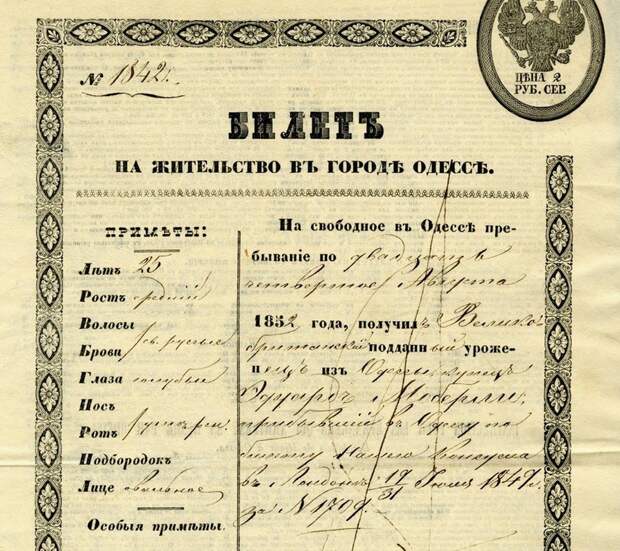 ЦѢНА 2
РУБ. СЕР.
№ 1842.
БИЛЕТЪ
НА ЖИТЕЛЬСТВО ВЪ ГОРОДѢ ОДЕССѢ.
ПРИМѢТЫ:
Лѣтъ 25
Ростъ средній
Волосы
Брови св. русые
Глаза голубые
Носъ
Ротъ умѣрен.
Подбородокъ
Лице овальное
Особыя примѣты.
На свободное въ Одессѣ пре-
бываніе по двадцать
четвертое Августа
1852 года, получилъ Велико-
британскій подданный уроже-
нецъ изъ Одессы, купецъ
Эдуардъ Моберли,
прибывшій въ Одессу по
билету Нашего Консула
въ Лондонѣ 19/31 Іюля 1847 г.
за N 1709.